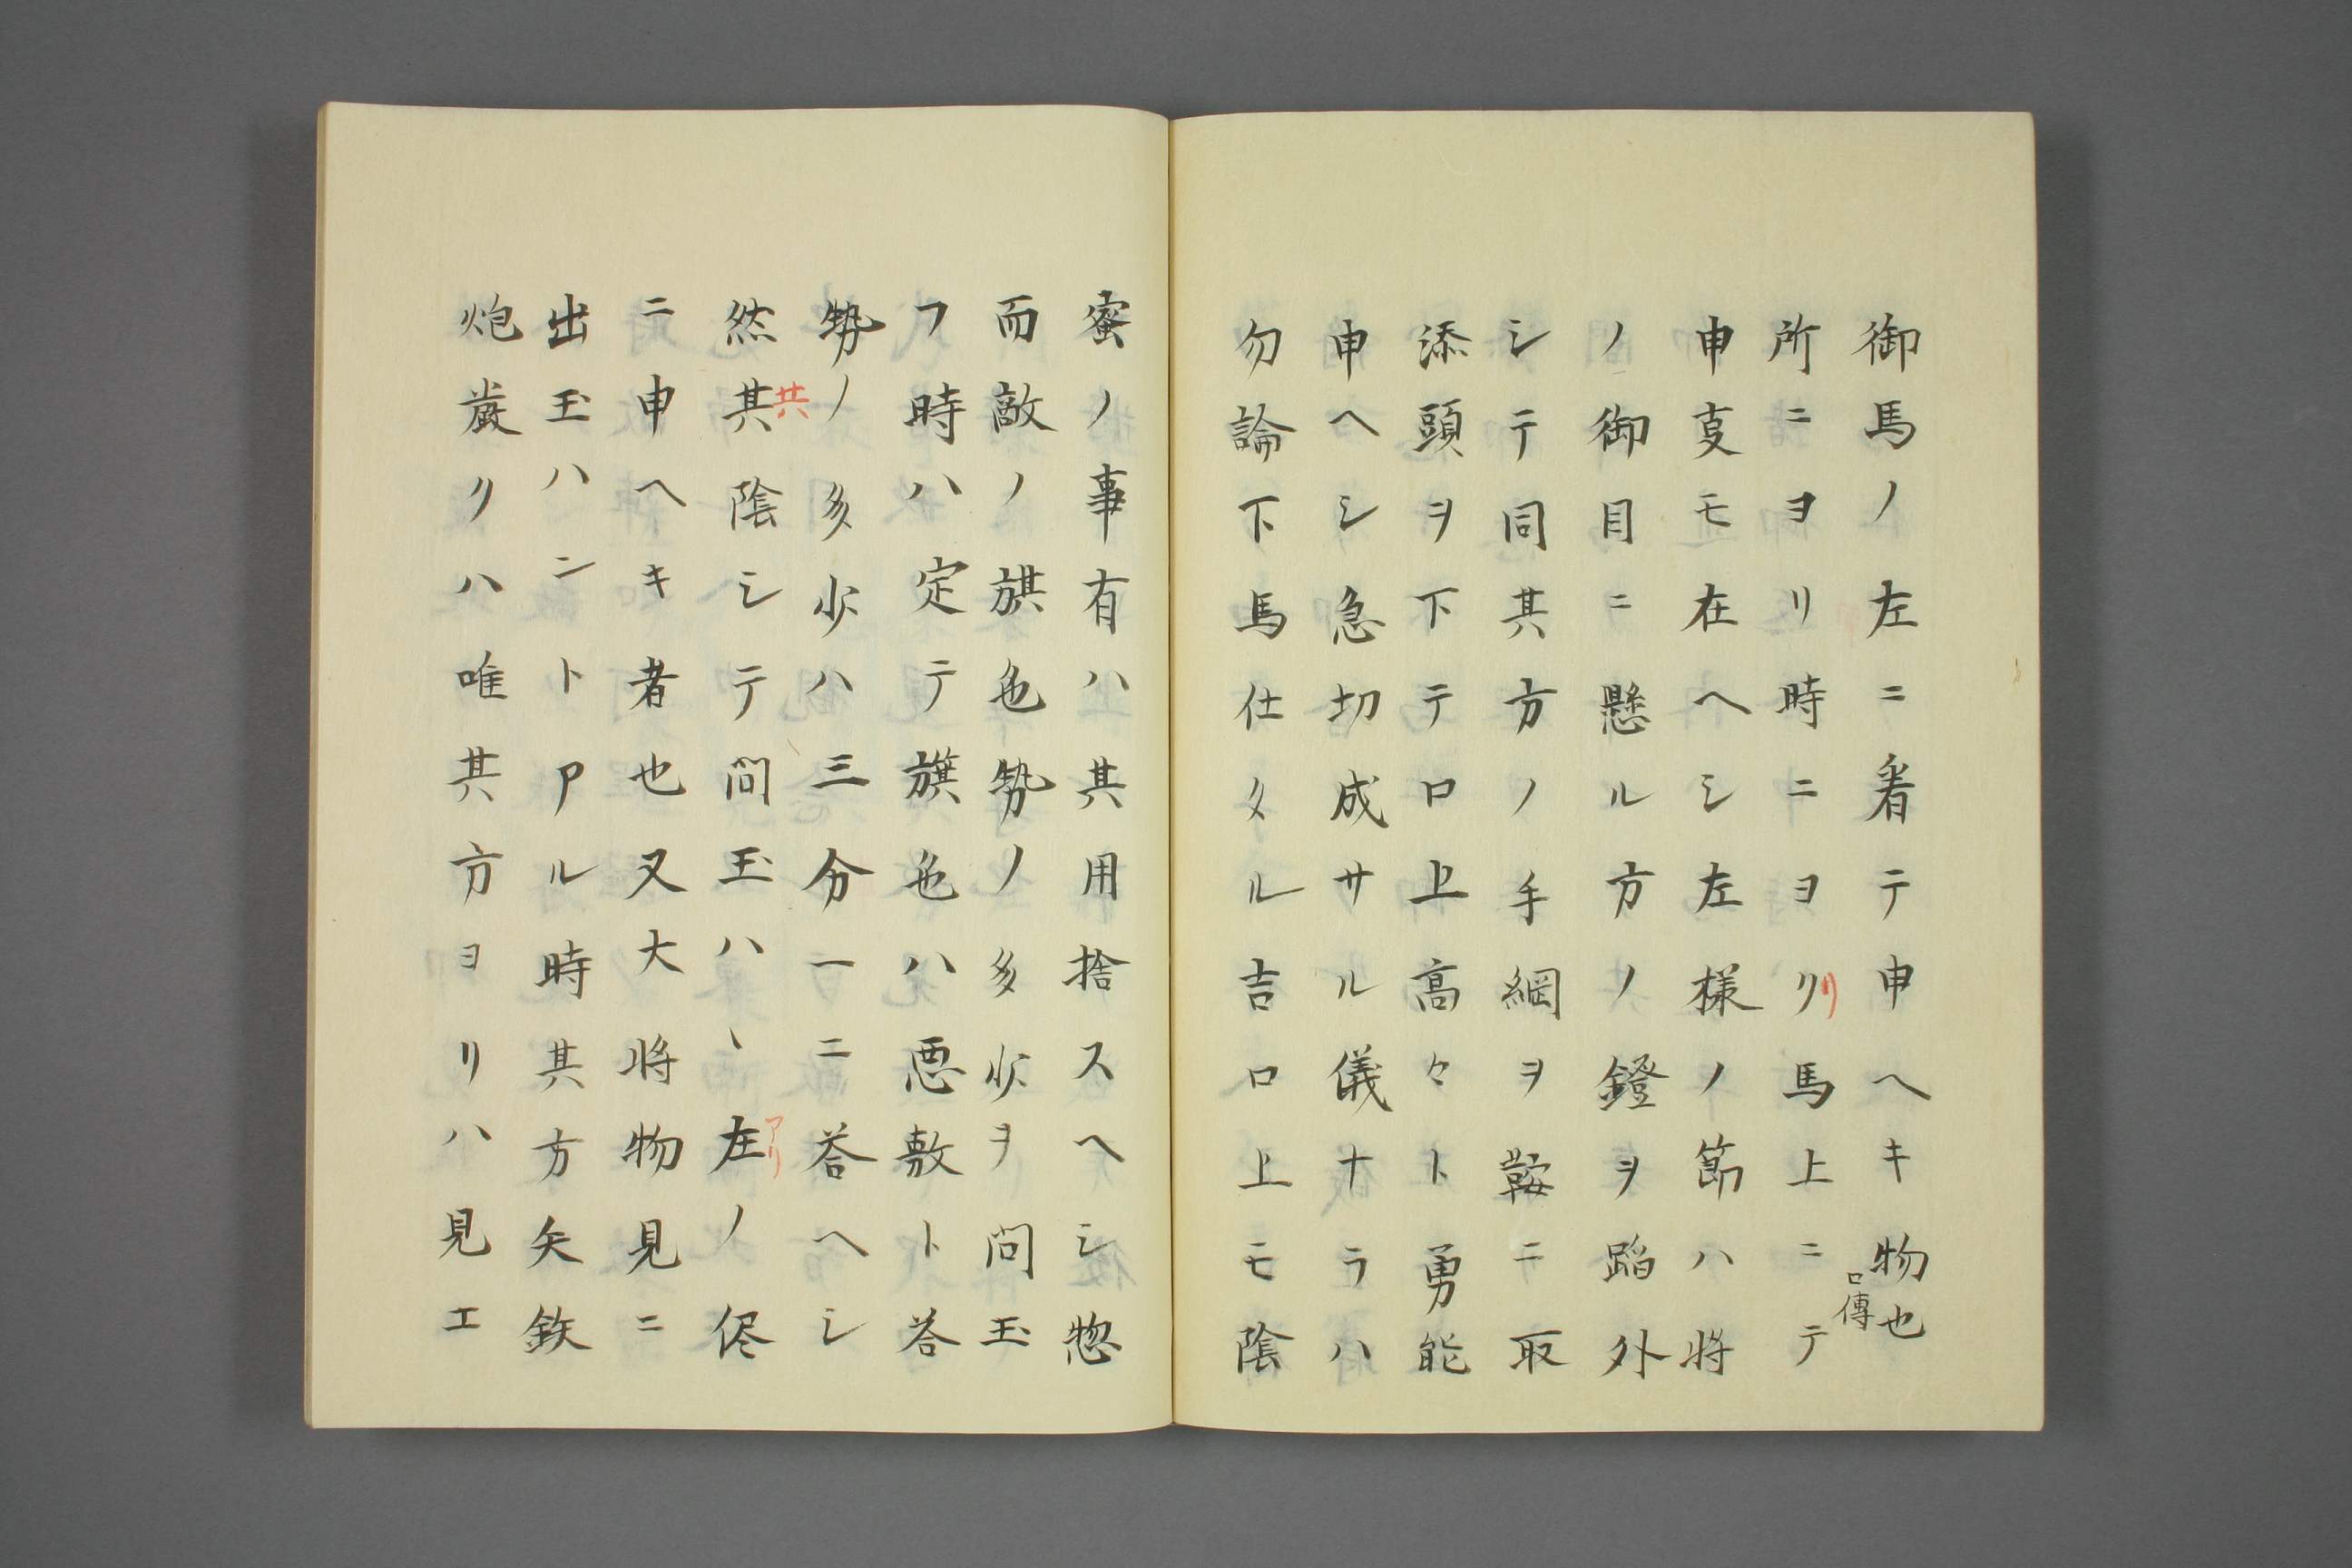 御馬ノ左ニ着テ申ヘキ物也
口傳
所ニヨリ時ニヨクリ馬上ニテ
申叓モ在ヘシ左様ノ節ハ将
ノ御目ニ懸ル方ノ鐙ヲ蹈外
シテ同其方ノ手綱ヲ鞍ニ取
添頭ヲ下テ口上高々ト勇能
申ヘシ急切成サル儀ナラハ
勿論下馬仕タル吉口上モ陰
蜜ノ事有ハ其用捨スヘシ惣
而敵ノ旗色勢ノ多少ヲ問玉
フ時ハ定テ旗色ハ悪敷ト荅
勢ノ多少ハ三分一ニ荅ヘシ
然其共陰シテ問玉ハヽ在アリノ侭
ニ申ヘキ者也又大将物見ニ
出玉ハントアル時其方矢鉄
炮嚴クハ唯其方ヨリハ見エ